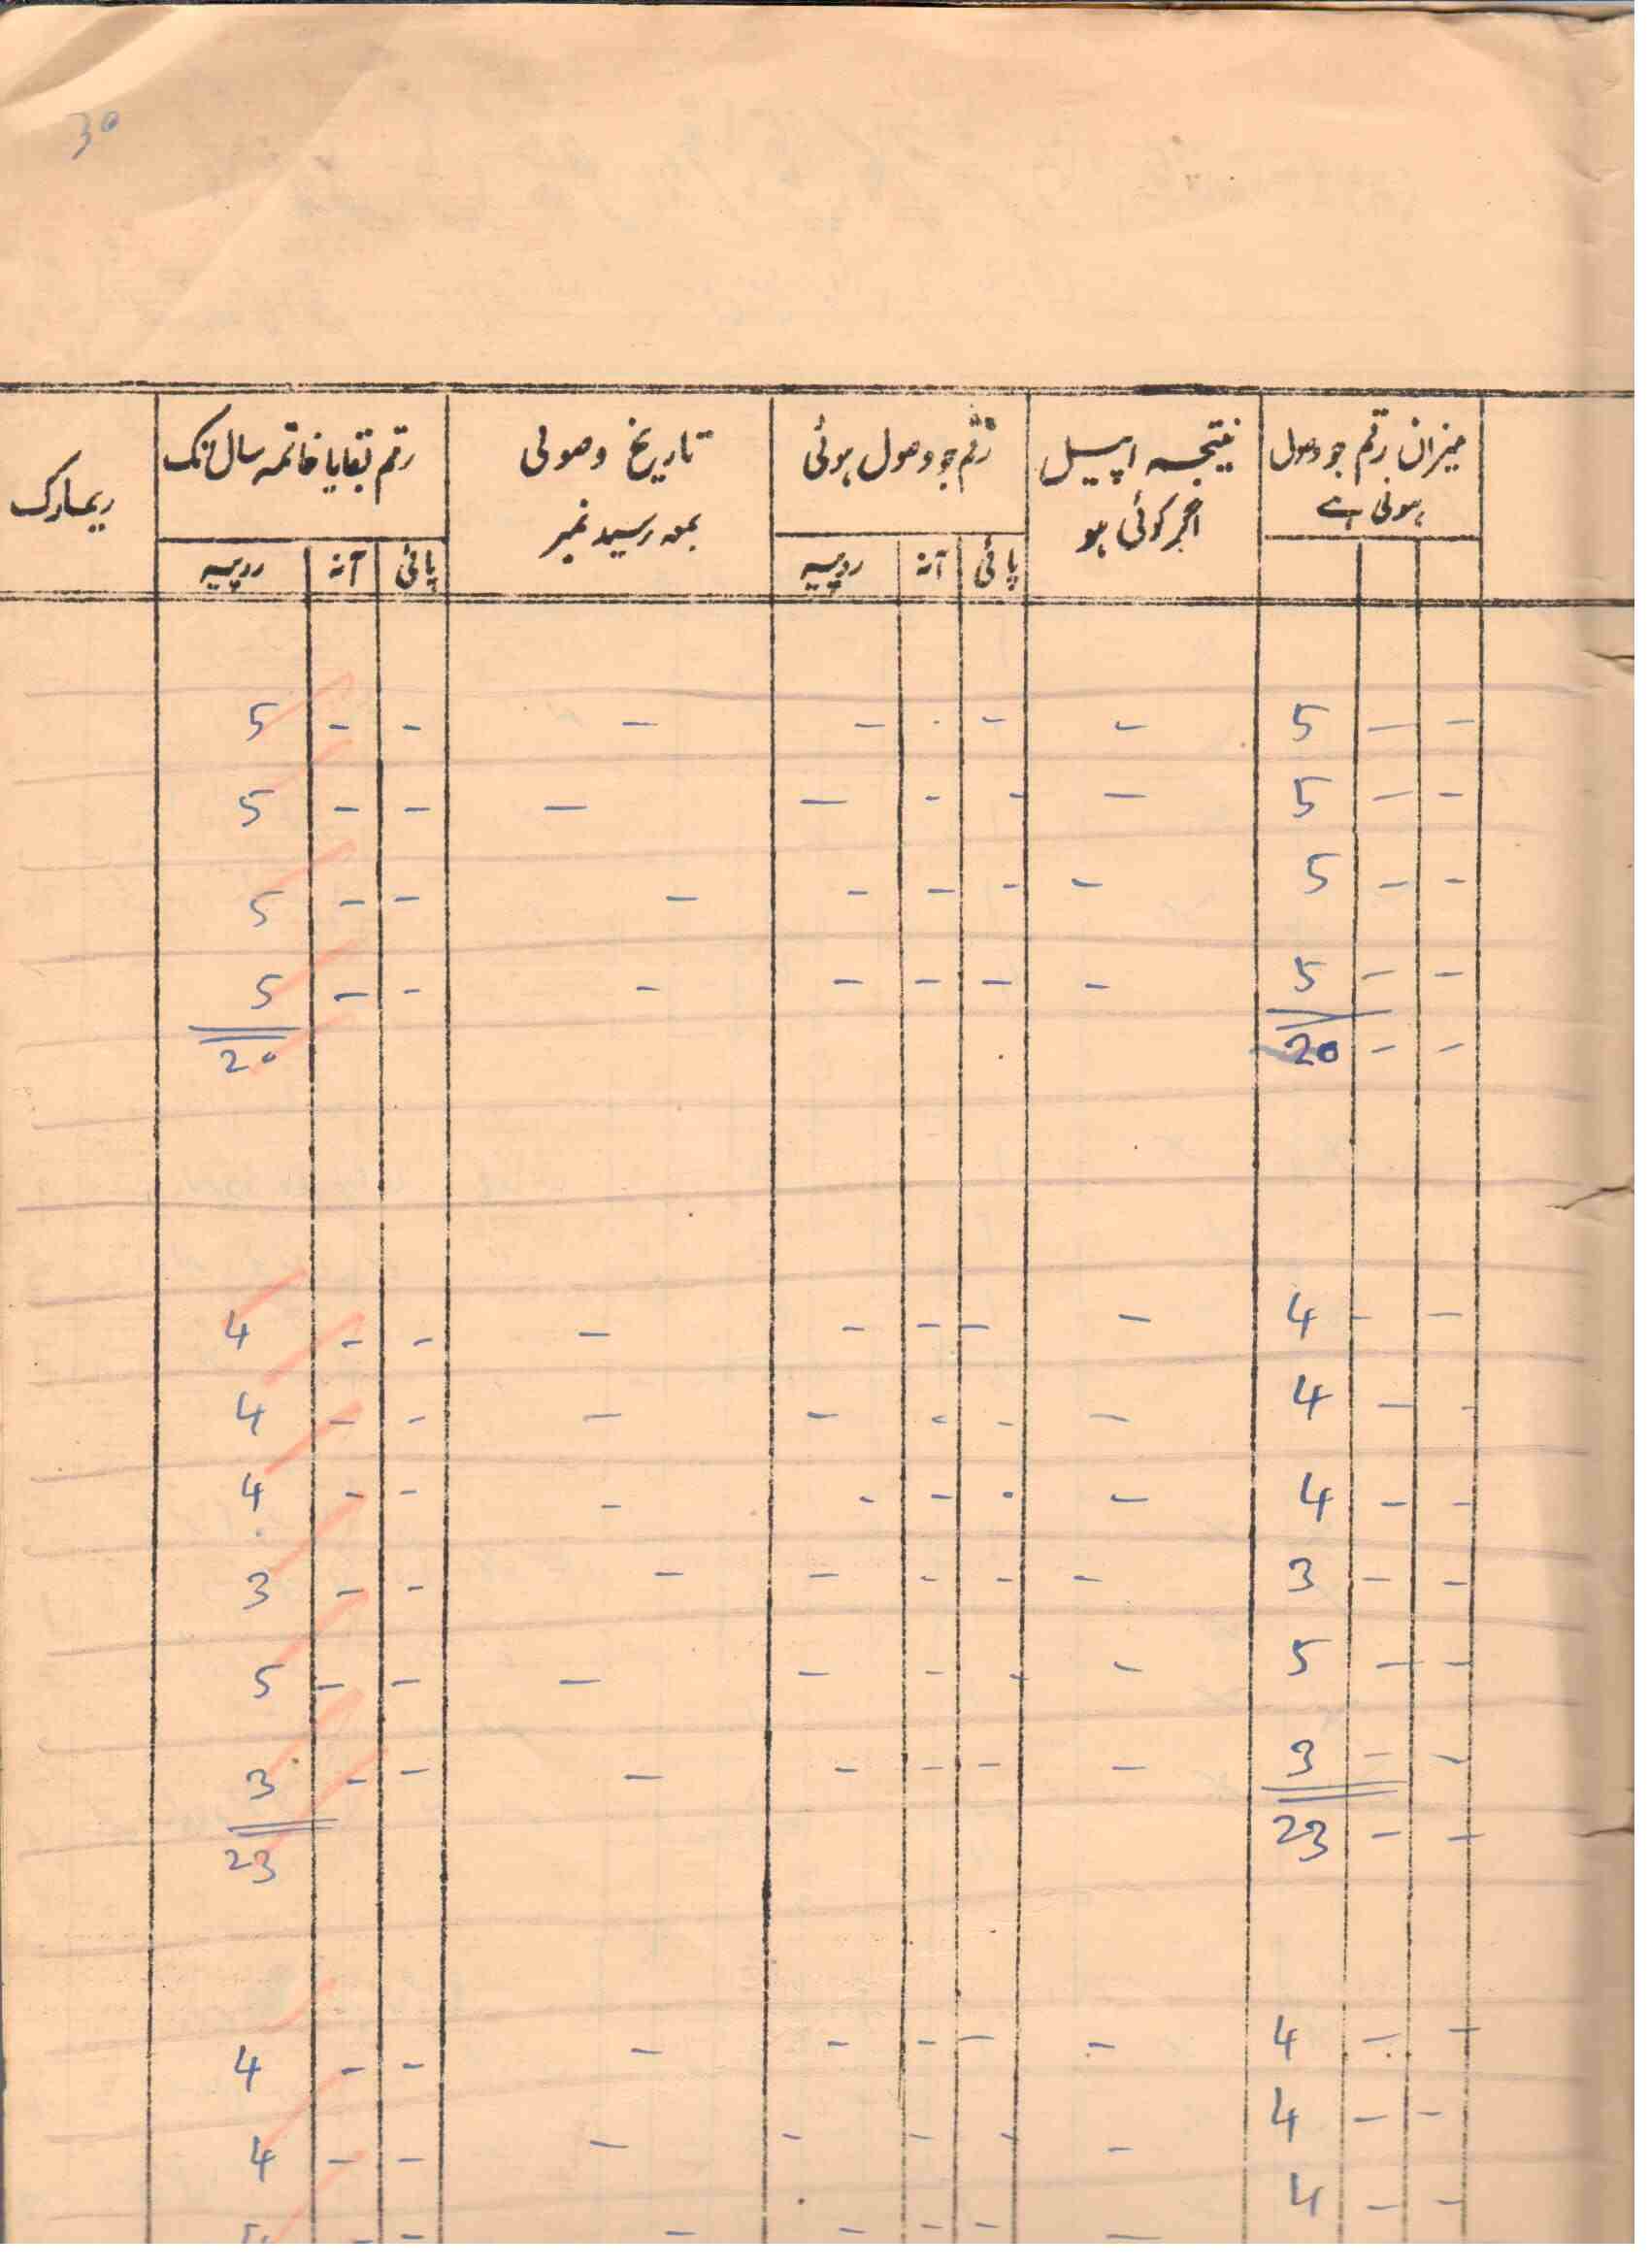 30
میزان رقم جو وصول ہونی ہے | نتیجہ اپیل اگر کوئی ہو | رقم جو وصول ہوئی | تاریخ وصولی بمعہ رسید نمبر | رقم بقایا خاتمہ سال تک | ریمارک
پائی | آنہ | روپیہ | پائی | آنہ | روپیہ
- | - | 5 | - | - | - | - | - | - | - | 5
- | - | 5 | - | - | - | - | - | - | - | 5
- | - | 5 | - | - | - | - | - | - | - | 5
- | - | 5 | - | - | - | - | - | - | - | 5
- | - | 20 | 20
- | - | 4 | - | - | - | - | - | - | - | 4
- | - | 4 | - | - | - | - | - | - | - | 4
- | - | 4 | - | - | - | - | - | - | - | 4
- | - | 3 | - | - | - | - | - | - | - | 3
- | - | 5 | - | - | - | - | - | - | - | 5
- | - | 3 | - | - | - | - | - | - | - | 3
- | - | 23 | 23
- | - | 4 | - | - | - | - | - | - | - | 4
- | - | 4 | - | - | - | - | - | - | - | 4
- | - | 4 | - | - | - | - | - | - | -